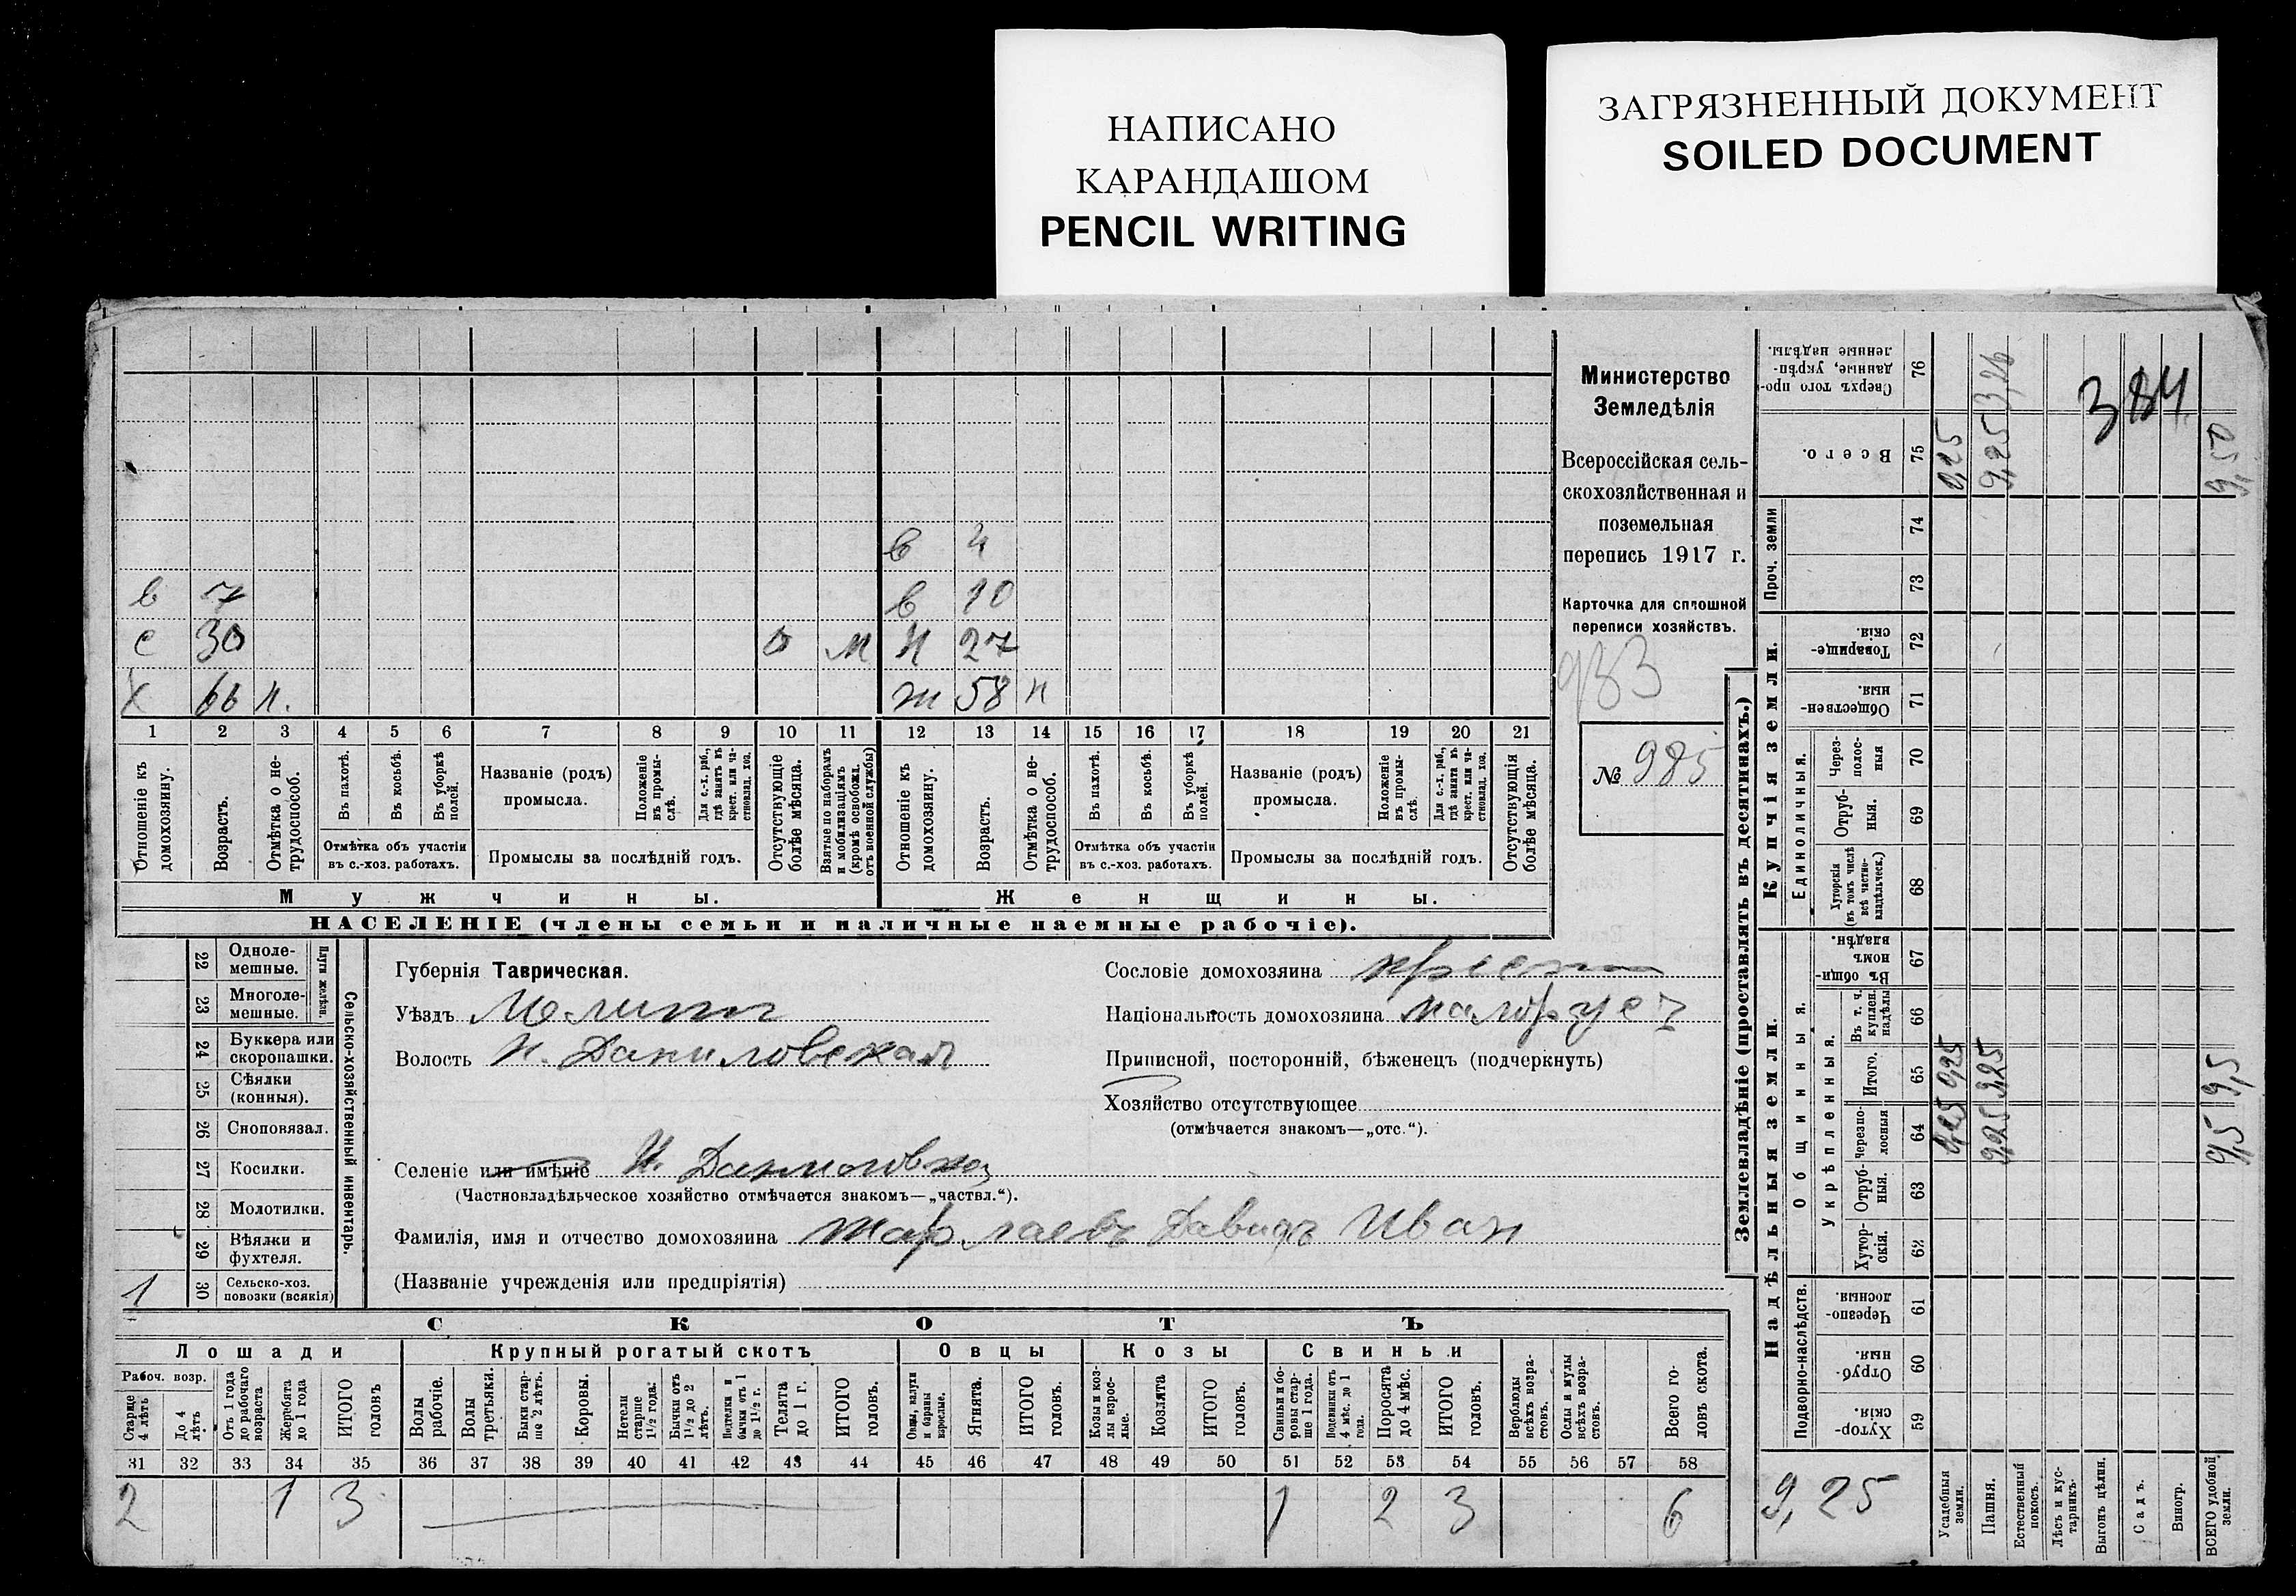 НАПИСАНО
КАРАНДАШОМ
PENCIL WRITING
ЗАГРЯЗНЕННЫЙ ДОКУМЕНТ
SOILED DOCUMENT
в 4
в 7 в 10
с 30 о м Н 27
Х 66 н. ж 58 н
1 2 3 4 5 6 7 8 9 10 11 12 13 14 15 16 17 18 19 20 21
Отношеніе къ домохозяину.
Возрастъ.
Отмѣтка о не-трудоспособ.
Въ пахотѣ.
Въ косьбѣ.
Въ уборкѣ полей.
Отмѣтка объ участіи въ с.-хоз. работахъ.
Названіе (родъ) промысла.
Положеніе въ промы-слѣ.
Для с.-х. раб., гдѣ занятъ въ крест. или ча-стновлад. хоз.
Промыслы за послѣдній годъ.
Отсутствующіе болѣе мѣсяца.
Взятые по наборамъ и мобилизаціямъ (кромѣ освобожд. отъ военной службы)
Отношеніе къ домохозяину.
Возрастъ.
Отмѣтка о не-трудоспособ.
Въ пахотѣ.
Въ косьбѣ.
Въ уборкѣ полей.
Отмѣтка объ участіи въ с.-хоз. работахъ.
Названіе (родъ) промысла.
Положеніе въ промы-слѣ.
Для с.-х. раб., гдѣ занята въ крест. или ча-стновлад. хоз.
Промыслы за послѣдній годъ.
Отсутствующія болѣе мѣсяца.
Мужчины.
Женщины.
НАСЕЛЕНІЕ (члены семьи и наличные наемные рабочіе).
Министерство
Земледѣлія
Всероссійская сель-
скохозяйственная и
поземельная
перепись 1917 г.
Карточка для сплошной
переписи хозяйствъ.
983
№ 985
22 Одноле-мешные.
23 Многоле-мешные.
Плуги желѣзн.
24 Буккера или скоропашки.
25 Сѣялки (конныя).
26 Сноповязал.
27 Косилки.
28 Молотилки.
29 Вѣялки и фухтеля.
1 30 Сельско-хоз. повозки (всякія)
Сельско-хозяйственный инвентарь.
Губернія Таврическая.
Уѣздъ Мелит
Волость Н. Даниловская
Селеніе или имѣніе Н. Даниловка
(Частновладѣльческое хозяйство отмѣчается знакомъ—„частвл.“).
Фамилія, имя и отчество домохозяина Давидъ Иван
(Названіе учрежденія или предпріятія)
Сословіе домохозяина крест
Національность домохозяина малорусс
Приписной, посторонній, бѣженецъ (подчеркнуть)
Хозяйство отсутствующее
(отмѣчается знакомъ—„отс.“).
СКОТЪ
Лошади
Крупный рогатый скотъ
Овцы
Козы
Свиньи
Рабоч. возр.
Старше 4 лѣтъ
До 4 лѣтъ
Отъ 1 года до рабочаго возраста
Жеребята до 1 года
ИТОГО головъ
Волы рабочіе.
Волы третьяки.
Быки стар-ше 2 лѣтъ.
Коровы.
Нетели старше 1½ года.
Бычки отъ 1½ до 2 лѣтъ.
Подтелки и бычки отъ 1 до 1½ г.
Телята до 1 г.
ИТОГО головъ.
Овцы, валухи и бараны взрослые.
Ягнята.
ИТОГО головъ.
Козы и коз-лы взрос-лые.
Козлята
ИТОГО головъ.
Свиньи и бо-ровы стар-ше 1 года.
Подсвинки отъ 4 мѣс. до 1 года.
Поросята до 4 мѣс.
ИТОГО головъ.
Верблюды всѣхъ возра-стовъ.
Ослы и мулы всѣхъ возра-стовъ.
Всего го-ловъ скота.
31 32 33 34 35 36 37 38 39 40 41 42 43 44 45 46 47 48 49 50 51 52 53 54 55 56 57 58
2 1 3 1 2 3 6
Землевладѣніе (проставлять въ десятинахъ.)
Сверхъ того про-данные, укрѣп-ленные надѣлы. 76 3,26
384
Всего. 75 0,25 9,25 9,50
Проч. земли
74
73
Купчія земли.
Товарище-скія. 72
Обществен-ныя. 71
Единоличныя.
Через-полос-ныя 70
Отруб-ныя. 69
Хуторскія (въ томъ числѣ всѣ частно-владѣльческ.) 68
Надѣльныя земли.
Общинныя.
Въ общин-номъ владѣн. 67
Укрѣпленныя.
Въ т. ч. куплен. надѣлы 66
Итого. 65 0,25 9,25 9,5
Черезпо-лосныя 64 0,25 9,25 9,5
Отруб-ныя. 63
Хутор-скія. 62
Подворно-наслѣдств.
Черезпо-лосныя. 61
Отруб-ныя. 60
Хутор-скія. 59
9,25
Усадебныя земли.
Пашня.
Естественный покосъ.
Лѣсъ и кус-тарникъ.
Выгонъ цѣлин.
Садъ.
Виногр.
ВСЕГО удобной земли.